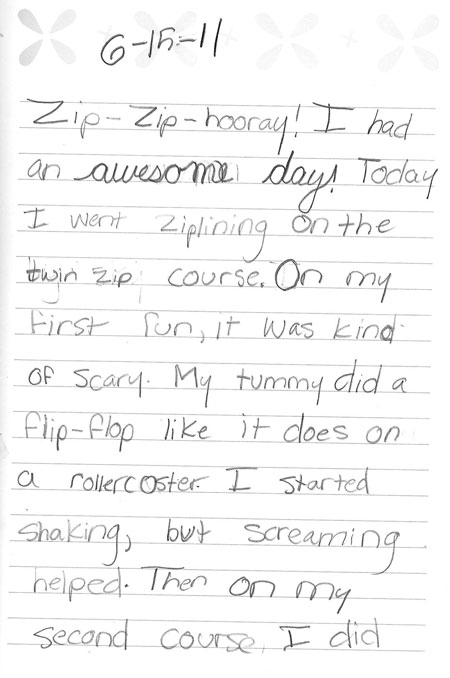 6-15-11
Zip-Zip-hooray! I had
an awesome day! Today
I went ziplining on the
twin zip course. On my
first run, it was kind
of scary. My tummy did a
flip-flop like it does on
a rollercoster. I started
shaking, but screaming
helped. Then on my
second course, I did